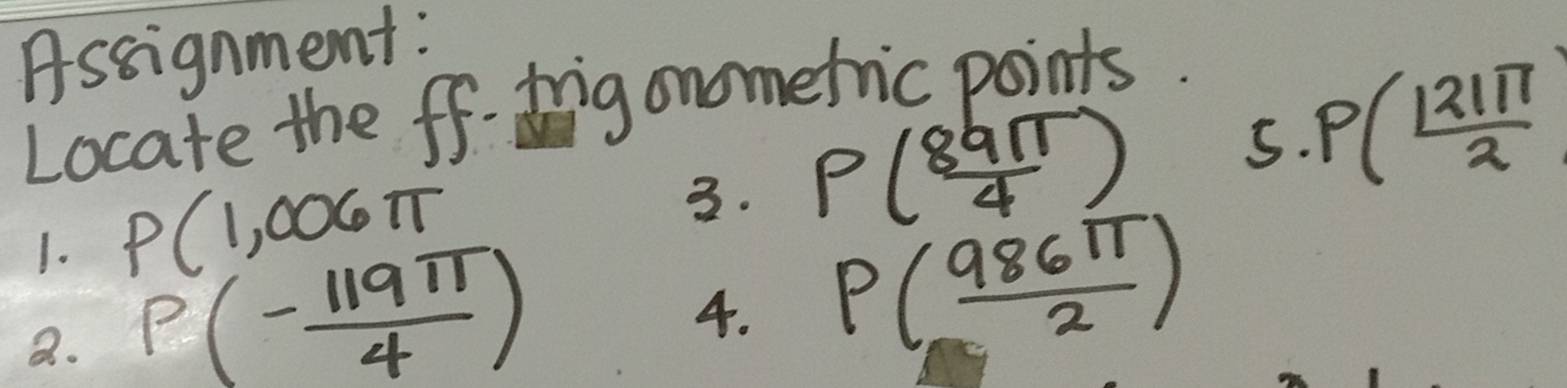 Assignment:
Locate the ff. trigonometric points.
1. P(1,006π
2. P(-119π/4)
3. P(89π/4)
4. P(986π/2)
5. P(121π/2